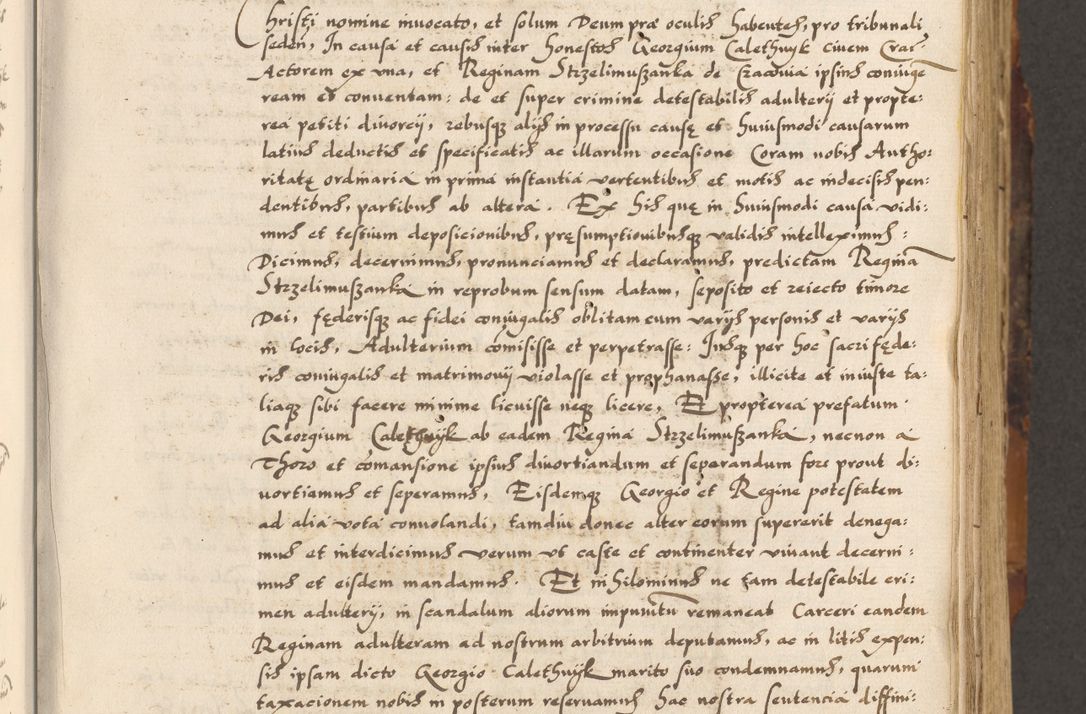 Christi nomine invocato, et solum Deum præ oculis habentes, pro tribunali
seden, In causa et causis inter honestos Georgium Calethuyk civem Crac
Actorem ex una, et Reginam Strzelimuszanka de Cracovia ipsius coniuge
ream et conventam: de et super crimine detestabilis adulterij et propte:
rea petiti divorcij, rebusq̃ alijs in processu causę et huiusmodi causarum
latius deductis et specificatis ac illarum occasione Coram nobis Autho:
ritatę ordinaria in prima instantia vertentibus et motis ac indecisis pen:
dentibus, partibus ab altera. Ex his quę in huiusmodi causa vidi:
mus et testium deposicionibus, pręsumptionibusq̃ validis intelleximus:
Dicimus, decernimus, pronunciamus et declaramus, predictam Regina
Strzelimuszanka in reprobum sensum datam, seposito et reiecto timore
Dei, fęderisq̃ ac fidei coniugalis oblitam cum varijs personis et varijs
in locis, Adulterium comisisse et perpetrasse: Iusq̃ per hoc sacri fęde:
ris coniugalis et matrimonij violasse et prophanasse, illicite et iniuste ta:
liaq̃ sibi facere minime licuisse neq̃ licere, Et propterea prefatum
Georgium Calethuyk ab eadem Regina Strzelimuszanka, necnon a
Thoro et comansione ipsius divortiandum et seperandum fore prout di:
vortiamus et seperamus, Eisdemq̃ Georgio et Regine potestatem
ad alia vota convolandi, tamdiu donec alter eorum supererit denega:
mus et interdicimus verum ut caste et continenter vivant decerni:
mus et eisdem mandamus. Et nihilominus ne tam detestabile cri:
men adulterij, in scandalum aliorum impunitu remaneat Carceri eandem
Reginam adulteram ad nostrum arbitrium deputamus, ac in litis expen:
sis ipsam dicto Georgio Calethuyk marito suo condemnamus, quarum
taxacionem nobis in posterum reservamus hac nostra sententia diffini: